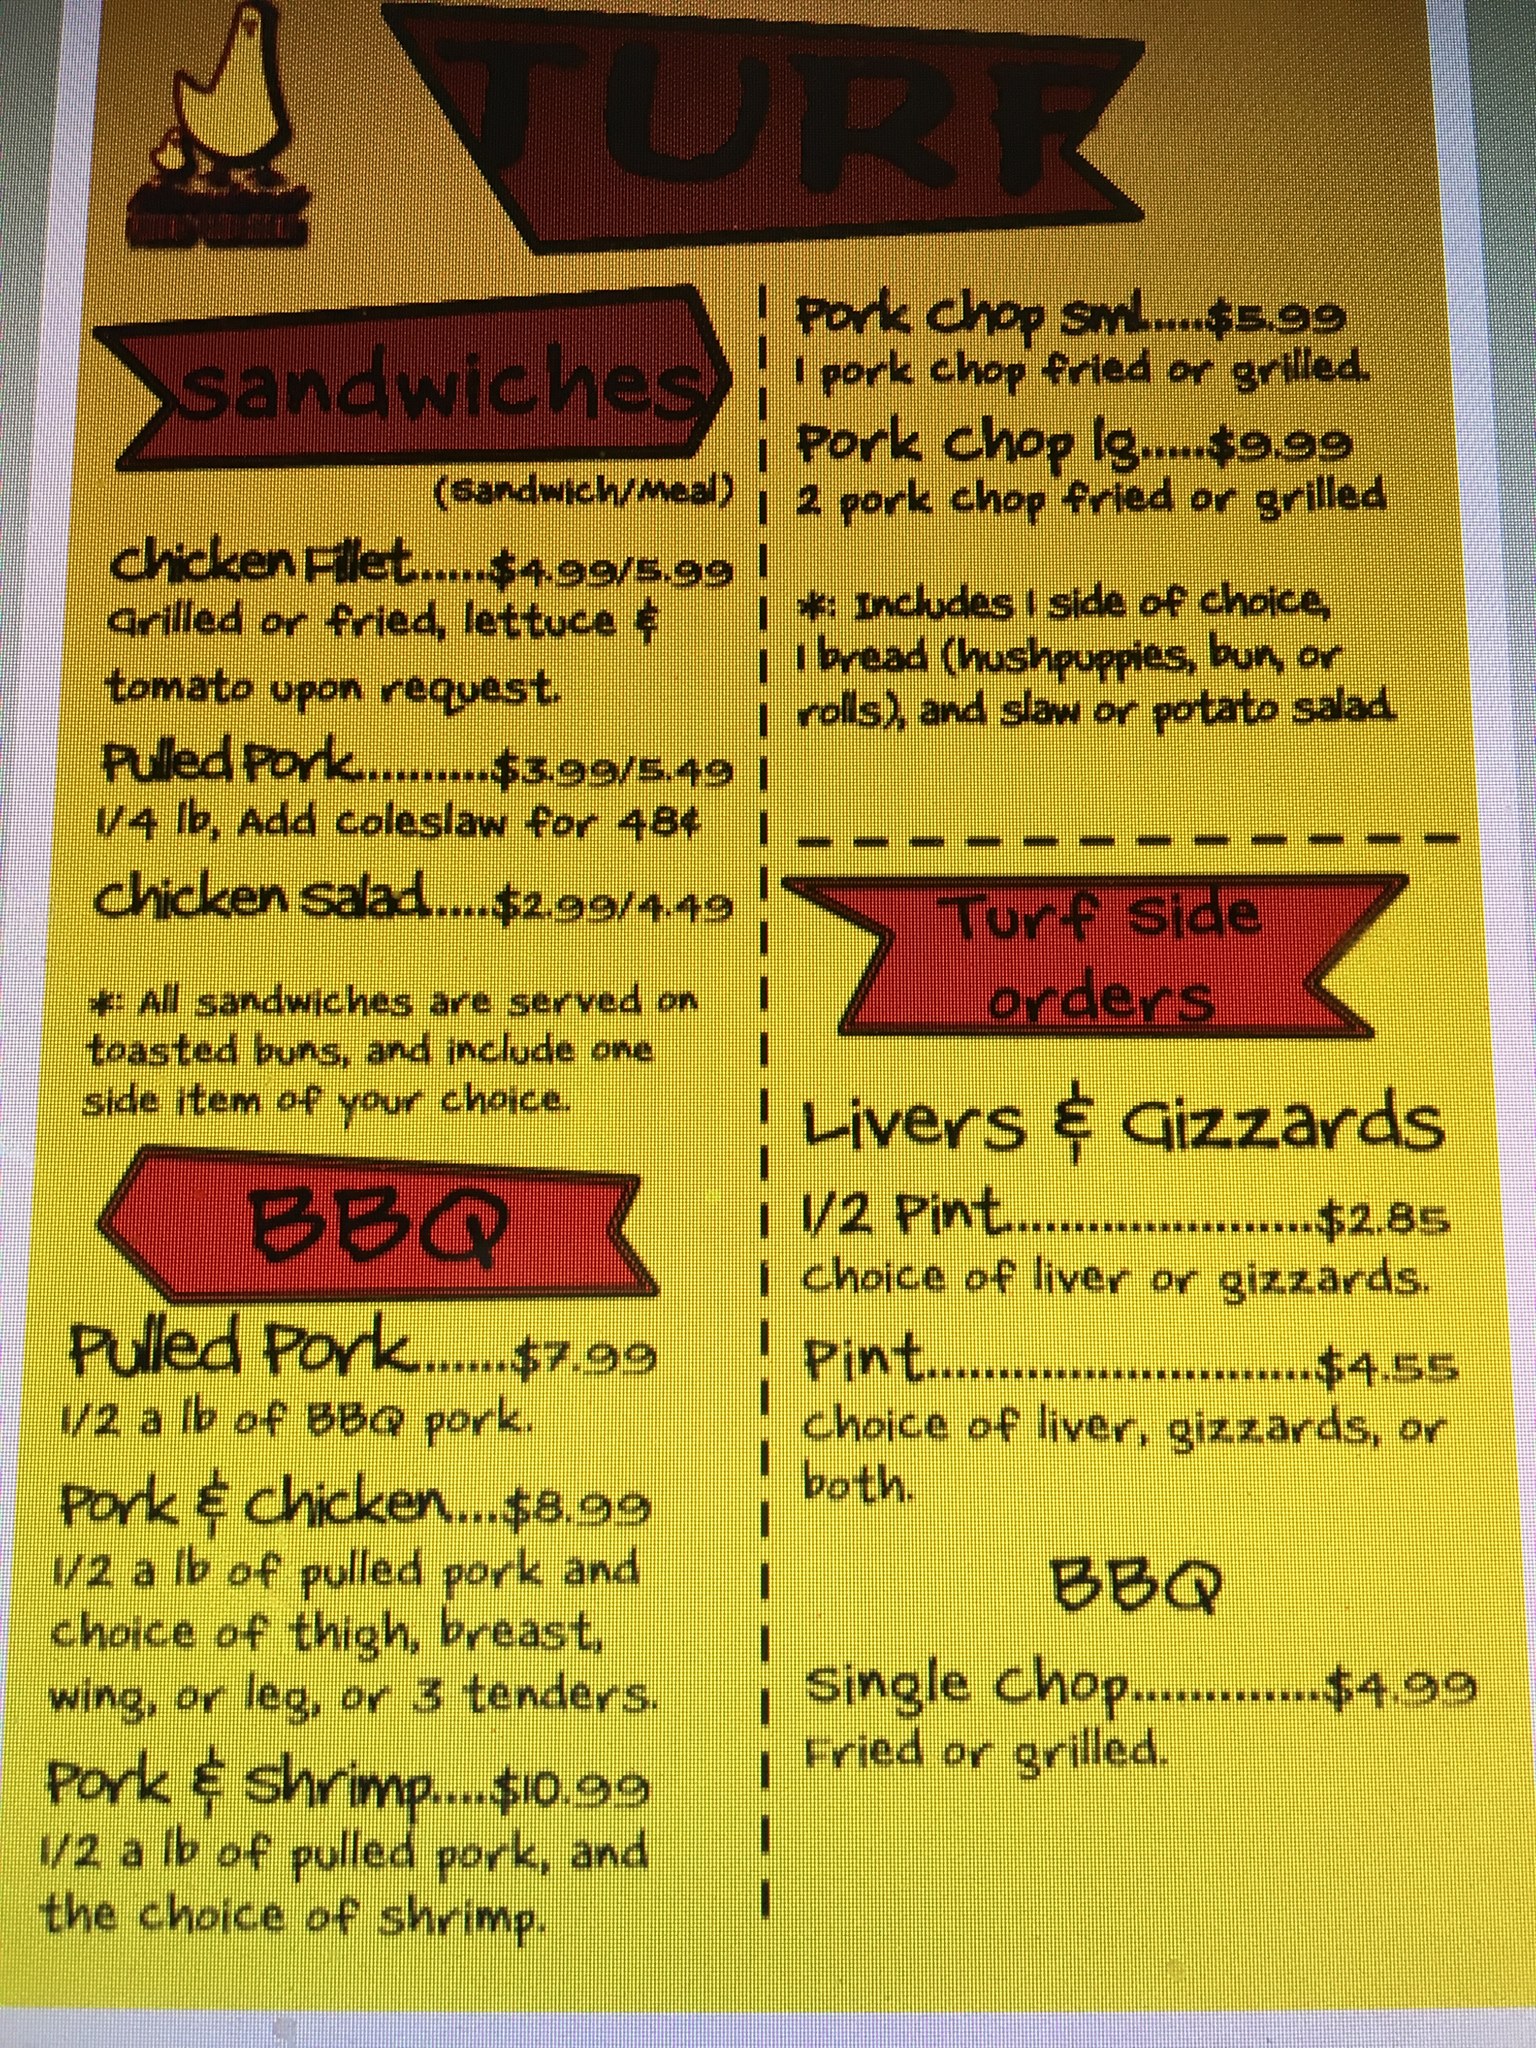 TURF
Sandwiches
(Sandwich/Meal)
Chicken Fillet......$4.99/5.99
Grilled or fried, lettuce &
tomato upon request.
Pulled Pork..........$3.99/5.49
1/4 lb, Add coleslaw for 48¢
Chicken Salad.....$2.99/4.49
*: All sandwiches are served on
toasted buns, and include one
side item of your choice.
BBQ
Pulled Pork.......$7.99
1/2 a lb of BBQ pork.
Pork & Chicken....$8.99
1/2 a lb of pulled pork and
choice of thigh, breast,
wing, or leg, or 3 tenders.
Pork & Shrimp.....$10.99
1/2 a lb of pulled pork, and
the choice of shrimp.
Pork Chop sml.....$5.99
1 pork chop fried or grilled.
Pork Chop lg.....$9.99
2 pork chop fried or grilled
*: Includes 1 side of choice,
1 bread (hushpuppies, bun, or
rolls), and slaw or potato salad.
Turf Side
orders
Livers & Gizzards
1/2 Pint......................$2.85
Choice of liver or gizzards.
Pint............................$4.55
Choice of liver, gizzards, or
both.
BBQ
Single Chop..............$4.99
Fried or grilled.